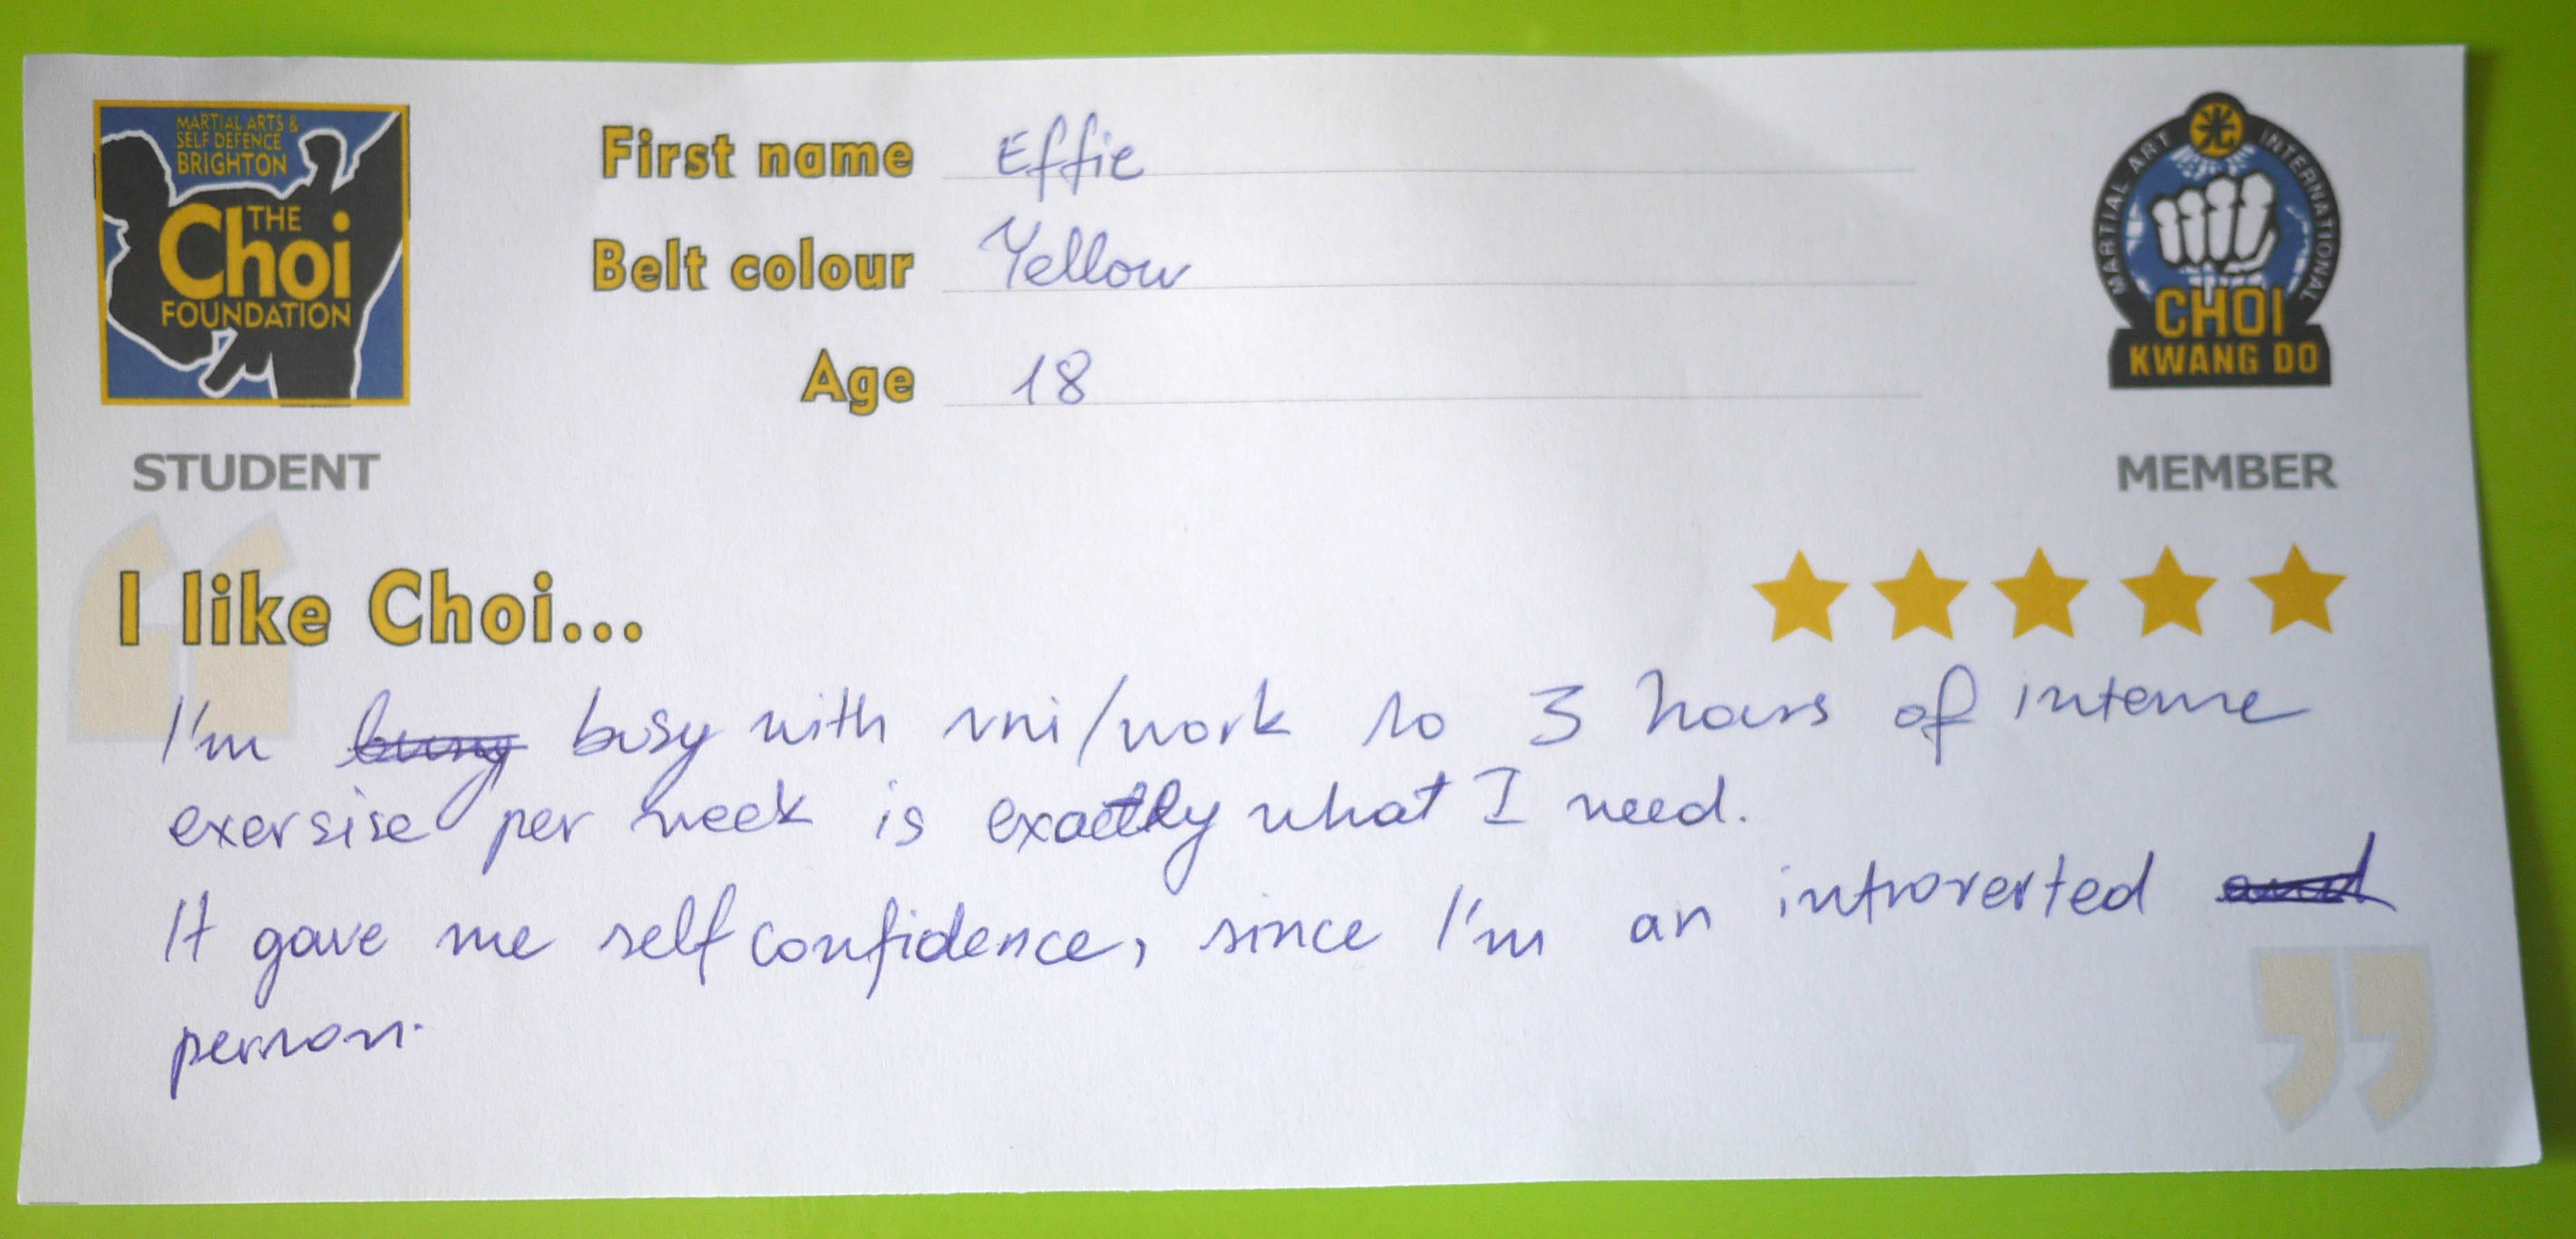 MARTIAL ARTS &
SELF DEFENCE
BRIGHTON
THE
Choi
FOUNDATION
STUDENT
First name Effie
Belt colour Yellow
Age 18
MARTIAL ART INTERNATIONAL
光
CHOI
KWANG DO
MEMBER
I like Choi...
I'm busy with uni/work so 3 hours of intense
exersise per week is exactly what I need.
It gave me self confidence, since I'm an introverted and
person.